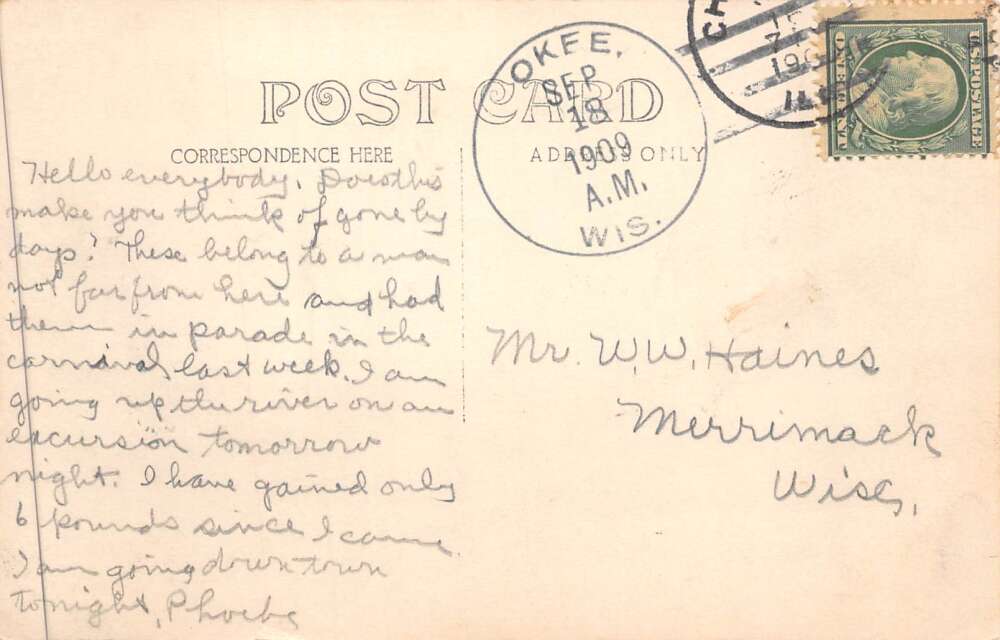 POST CARD
CORRESPONDENCE HERE
ADDRESS ONLY
OKEE,
SEP
18
1909
A.M.
WIS.
ILL
U.S. POSTAGE
ONE CENT
Hello everybody. Does this
make you think of gone by
days? These belong to a man
not far from here and had
them in parade in the
carnival last week. I am
going up the river on an
excursion tomorrow
night. I have gained only
6 pounds since I came
I am going down town
tonight, Phoebe
Mr. W.W. Haines
Merrimack
Wisc,